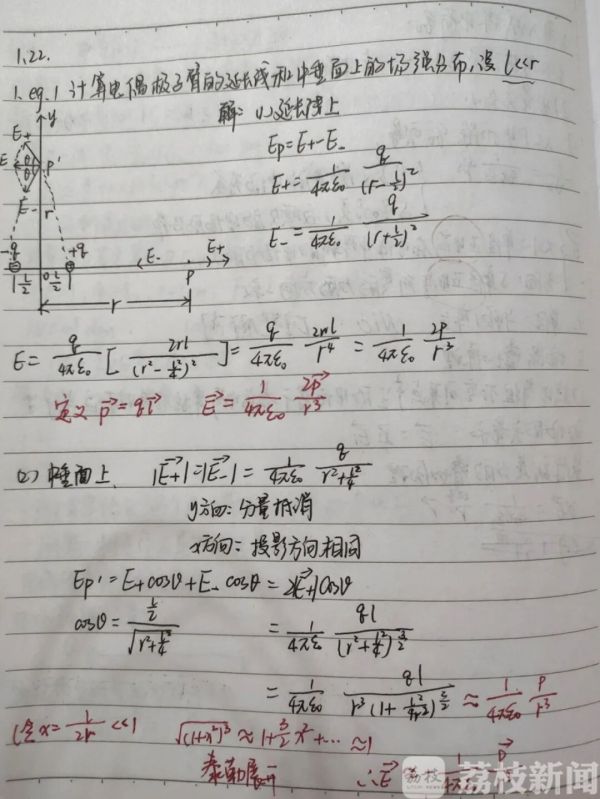 1.22.
1. eg.1 计算电偶极子臂的延长线和中垂面上的场强分布,设 l<<r
解: (1)延长线上
y
E+
E
θ
θ
P'
E-
r
-q
+q
l/2
0
l/2
E-
E+
P
r
Ep=E+-E-
E+= 1/4πε₀ q/(r-l/2)²
E-= 1/4πε₀ q/(r+l/2)²
E= q/4πε₀ [ 2rl/(r²-l²/4)² ]= q/4πε₀ 2rl/r⁴ = 1/4πε₀ 2p/r³
定义 p⃗=ql⃗ E⃗= 1/4πε₀ 2p⃗/r³
(2) 中垂面上. |E⃗+|=|E⃗-|= 1/4πε₀ q/(r²+l²/4)
y方向: 分量抵消
x方向: 投影方向相同
Ep'=E+cosθ+E-cosθ=2|E⃗+|cosθ
cosθ= (l/2)/√(r²+l²/4) = 1/4πε₀ ql/(r²+l²/4)^(3/2)
= 1/4πε₀ ql/(r³(1+l²/4r²)^(3/2)) ≈ 1/4πε₀ p/r³
(令x= l/2r <<1 √(1+x²)³ ≈1+3/2x²+… ≈1
泰勒展开 ∴E⃗
荔枝 荔枝新闻